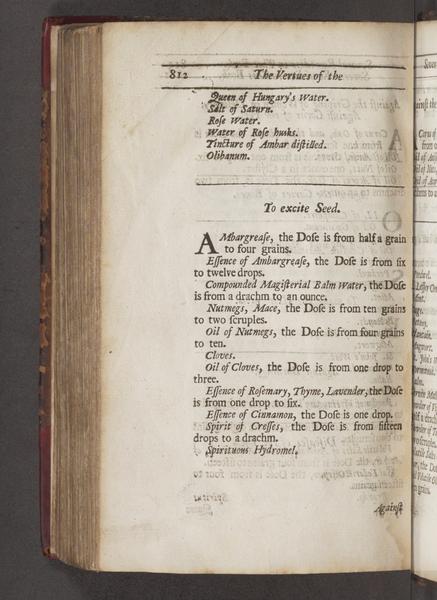 812 The Vertues of the
Queen of Hungary's Water.
Salt of Saturn.
Rose Water.
Water of Rose husks.
Tincture of Ambar distilled.
Olibanum.
To excite Seed.
AMbargrease, the Dose is from half a grain
to four grains.
Essence of Ambargrease, the Dose is from six
to twelve drops.
Compounded Magisterial Balm Water, the Dose
is from a drachm to an ounce.
Nutmegs, Mace, the Dose is from ten grains
to two scruples.
Oil of Nutmegs, the Dose is from four grains
to ten.
Cloves.
Oil of Cloves, the Dose is from one drop to
three.
Essence of Rosemary, Thyme, Lavender, the Dose
is from one drop to six.
Essence of Cinnamon, the Dose is one drop.
Spirit of Cresses, the Dose is from fifteen
drops to a drachm.
Spirituous Hydromel.
Against